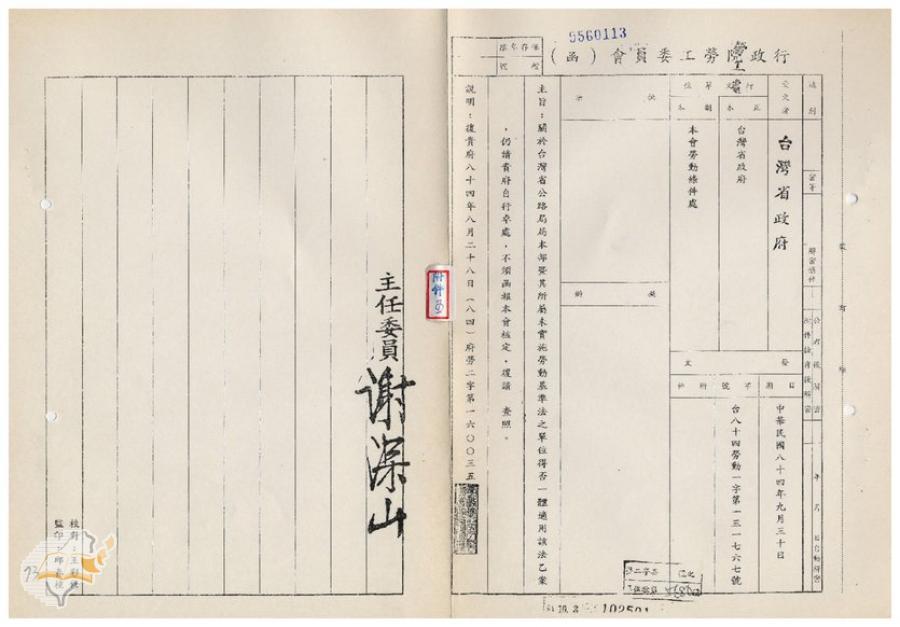 9560113
行政院勞工委員會（函）
保存年限
受文者
台灣省政府
行文單位
正本
台灣省政府
副本
本會勞動條件處
發文
日期
中華民國八十四年九月三十日
字號
台八十四勞動一字第一三一七六七號
附件
批示
擬辦
主旨：關於台灣省公路局局本部暨其所屬未實施勞動基準法之單位得否一體適用該法乙案
，仍請貴府自行卓處，不須函報本會核定，復請　查照。
說明：復貴府八十四年八月二十八日（八四）府勞二字第一六〇〇三五
附件
主任委員 謝深山
校對：王
監印：邱
73